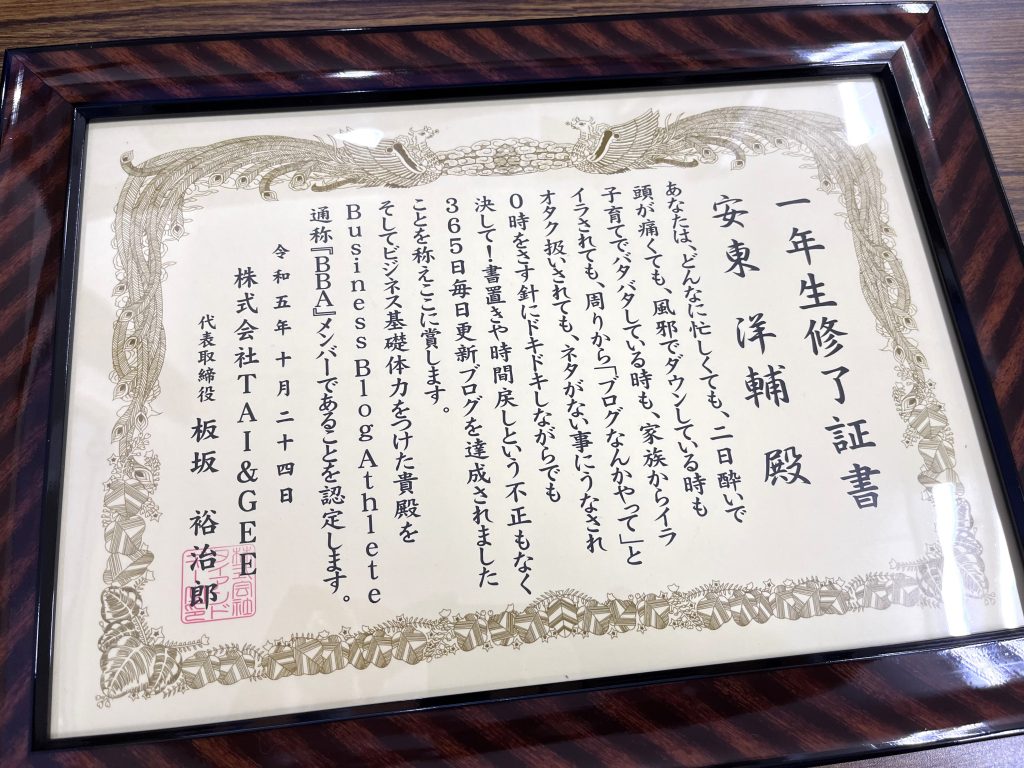 一年生修了証書
安東 洋輔 殿
あなたは、どんなに忙しくても、二日酔いで
頭が痛くても、風邪でダウンしている時も
子育てでバタバタしている時も、家族からイラ
イラされても、周りから「ブログなんかやって」と
オタク扱いされても、ネタがない事にうなされ
0時をさす針にドキドキしながらでも
決して!書置きや時間戻しという不正もなく
365日毎日更新ブログを達成されました
ことを称えここに賞します。
そしてビジネス基礎体力をつけた貴殿を
Business Blog Athlete
通称『BBA』メンバーであることを認定します。
令和五年十月二十四日
株式会社TAI&GEE
代表取締役 板坂 裕治郎
株式会社